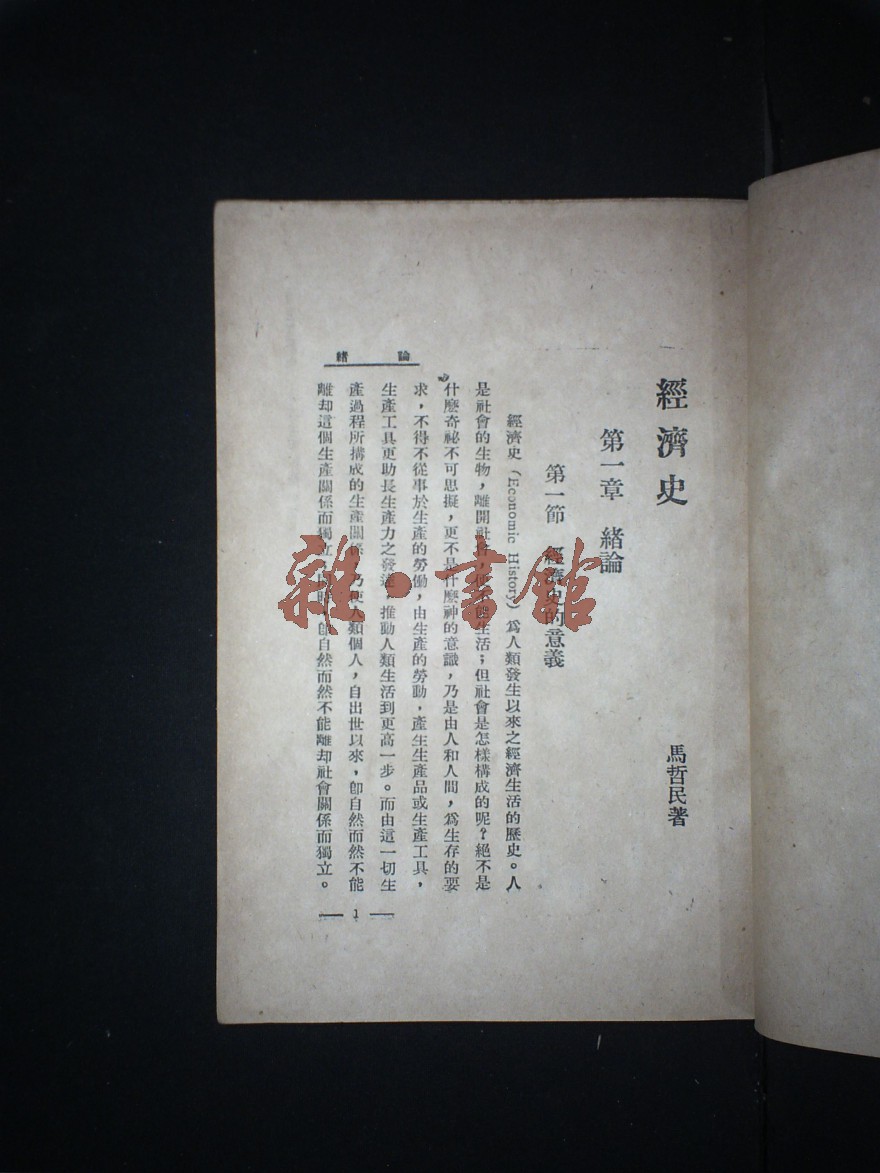 經濟史
馬哲民著
第一章 緒論
第一節 經濟史的意義
經濟史（Economic History）爲人類發生以來之經濟生活的歷史。人
是社會的生物，離開社會，便不能生活；但社會是怎樣構成的呢？絕不是
什麼奇祕不可思擬，更不是什麼神的意識，乃是由人和人間，爲生存的要
求，不得不從事於生產的勞働，由生產的勞動，產生生產品或生產工具，
生產工具更助長生產力之發達，推動人類生活到更高一步。而由這一切生
產過程所構成的生產關係，乃使人類個人，自出世以來，卽自然而然不能
離却這個生產關係而獨立，同時，卽自然而然不能離却社會關係而獨立。
緒論
— 1 —
雜·書館